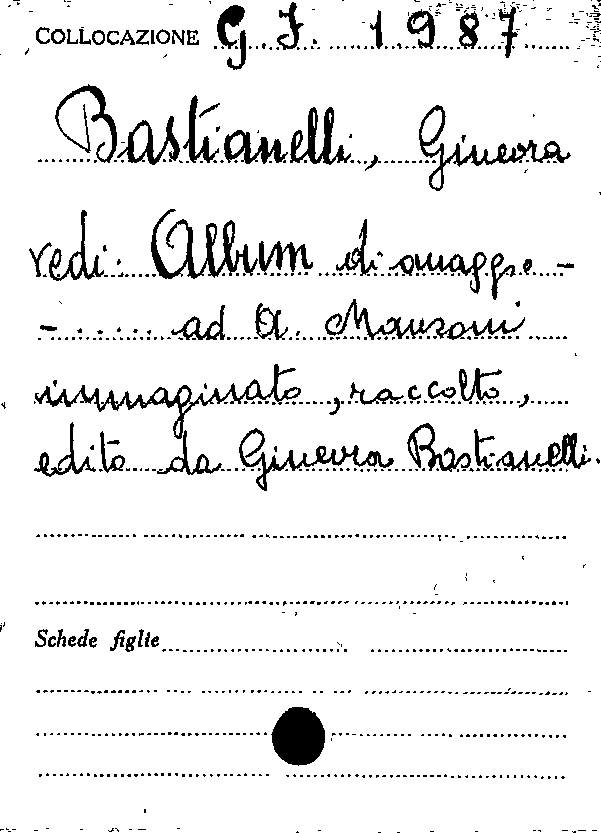 COLLOCAZIONE G. J. 1987
Bastianelli, Ginevra
vedi: Album di omaggio -
- ...... ad A. Manzoni
immaginato, raccolto,
edito da Ginevra Bastianelli.
Schede figlie